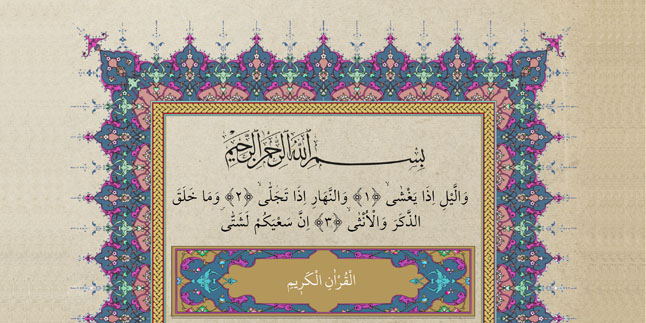 بِسْمِ اللَّهِ الرَّحْمٰنِ الرَّحِيمِ
وَالَّيْلِ اِذَا يَغْشٰىۙ ﴿١﴾ وَالنَّهَارِ اِذَا تَجَلّٰىۙ ﴿٢﴾ وَمَا خَلَقَ
الذَّكَرَ وَالْاُنْثٰىۙ ﴿٣﴾ اِنَّ سَعْيَكُمْ لَشَتّٰى
الْقُرْاٰنِ الْكَرِيمِ